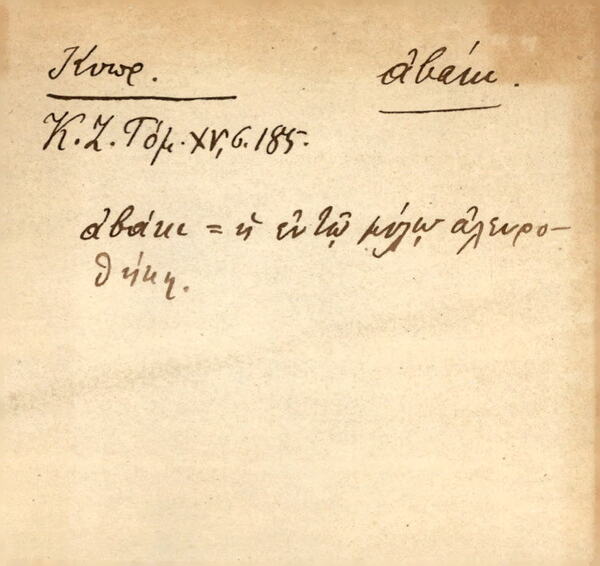 Κυπρ. ἀβάκι.
Κ.Ζ. Τόμ. XV, σ. 185.
ἀβάκι = ἡ ἐν τῷ μύλῳ ἀλευρο-
θήκη.